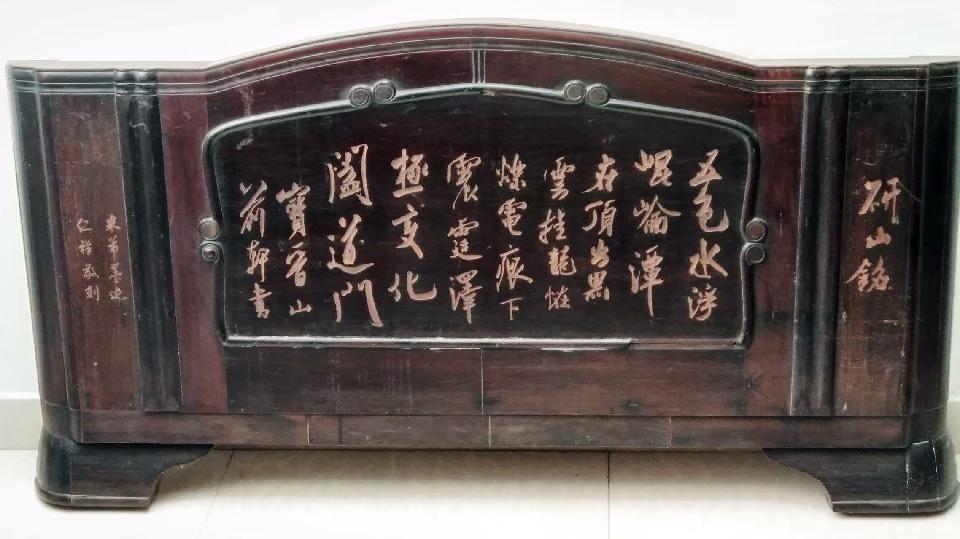 研山銘
五色水浮
崐崘潭
在頂出黑
雲挂龍怪
爍電痕下
震霆澤
極變化
闔道門
寶晉山
前軒書
米芾墨迹
仁祥敬刻